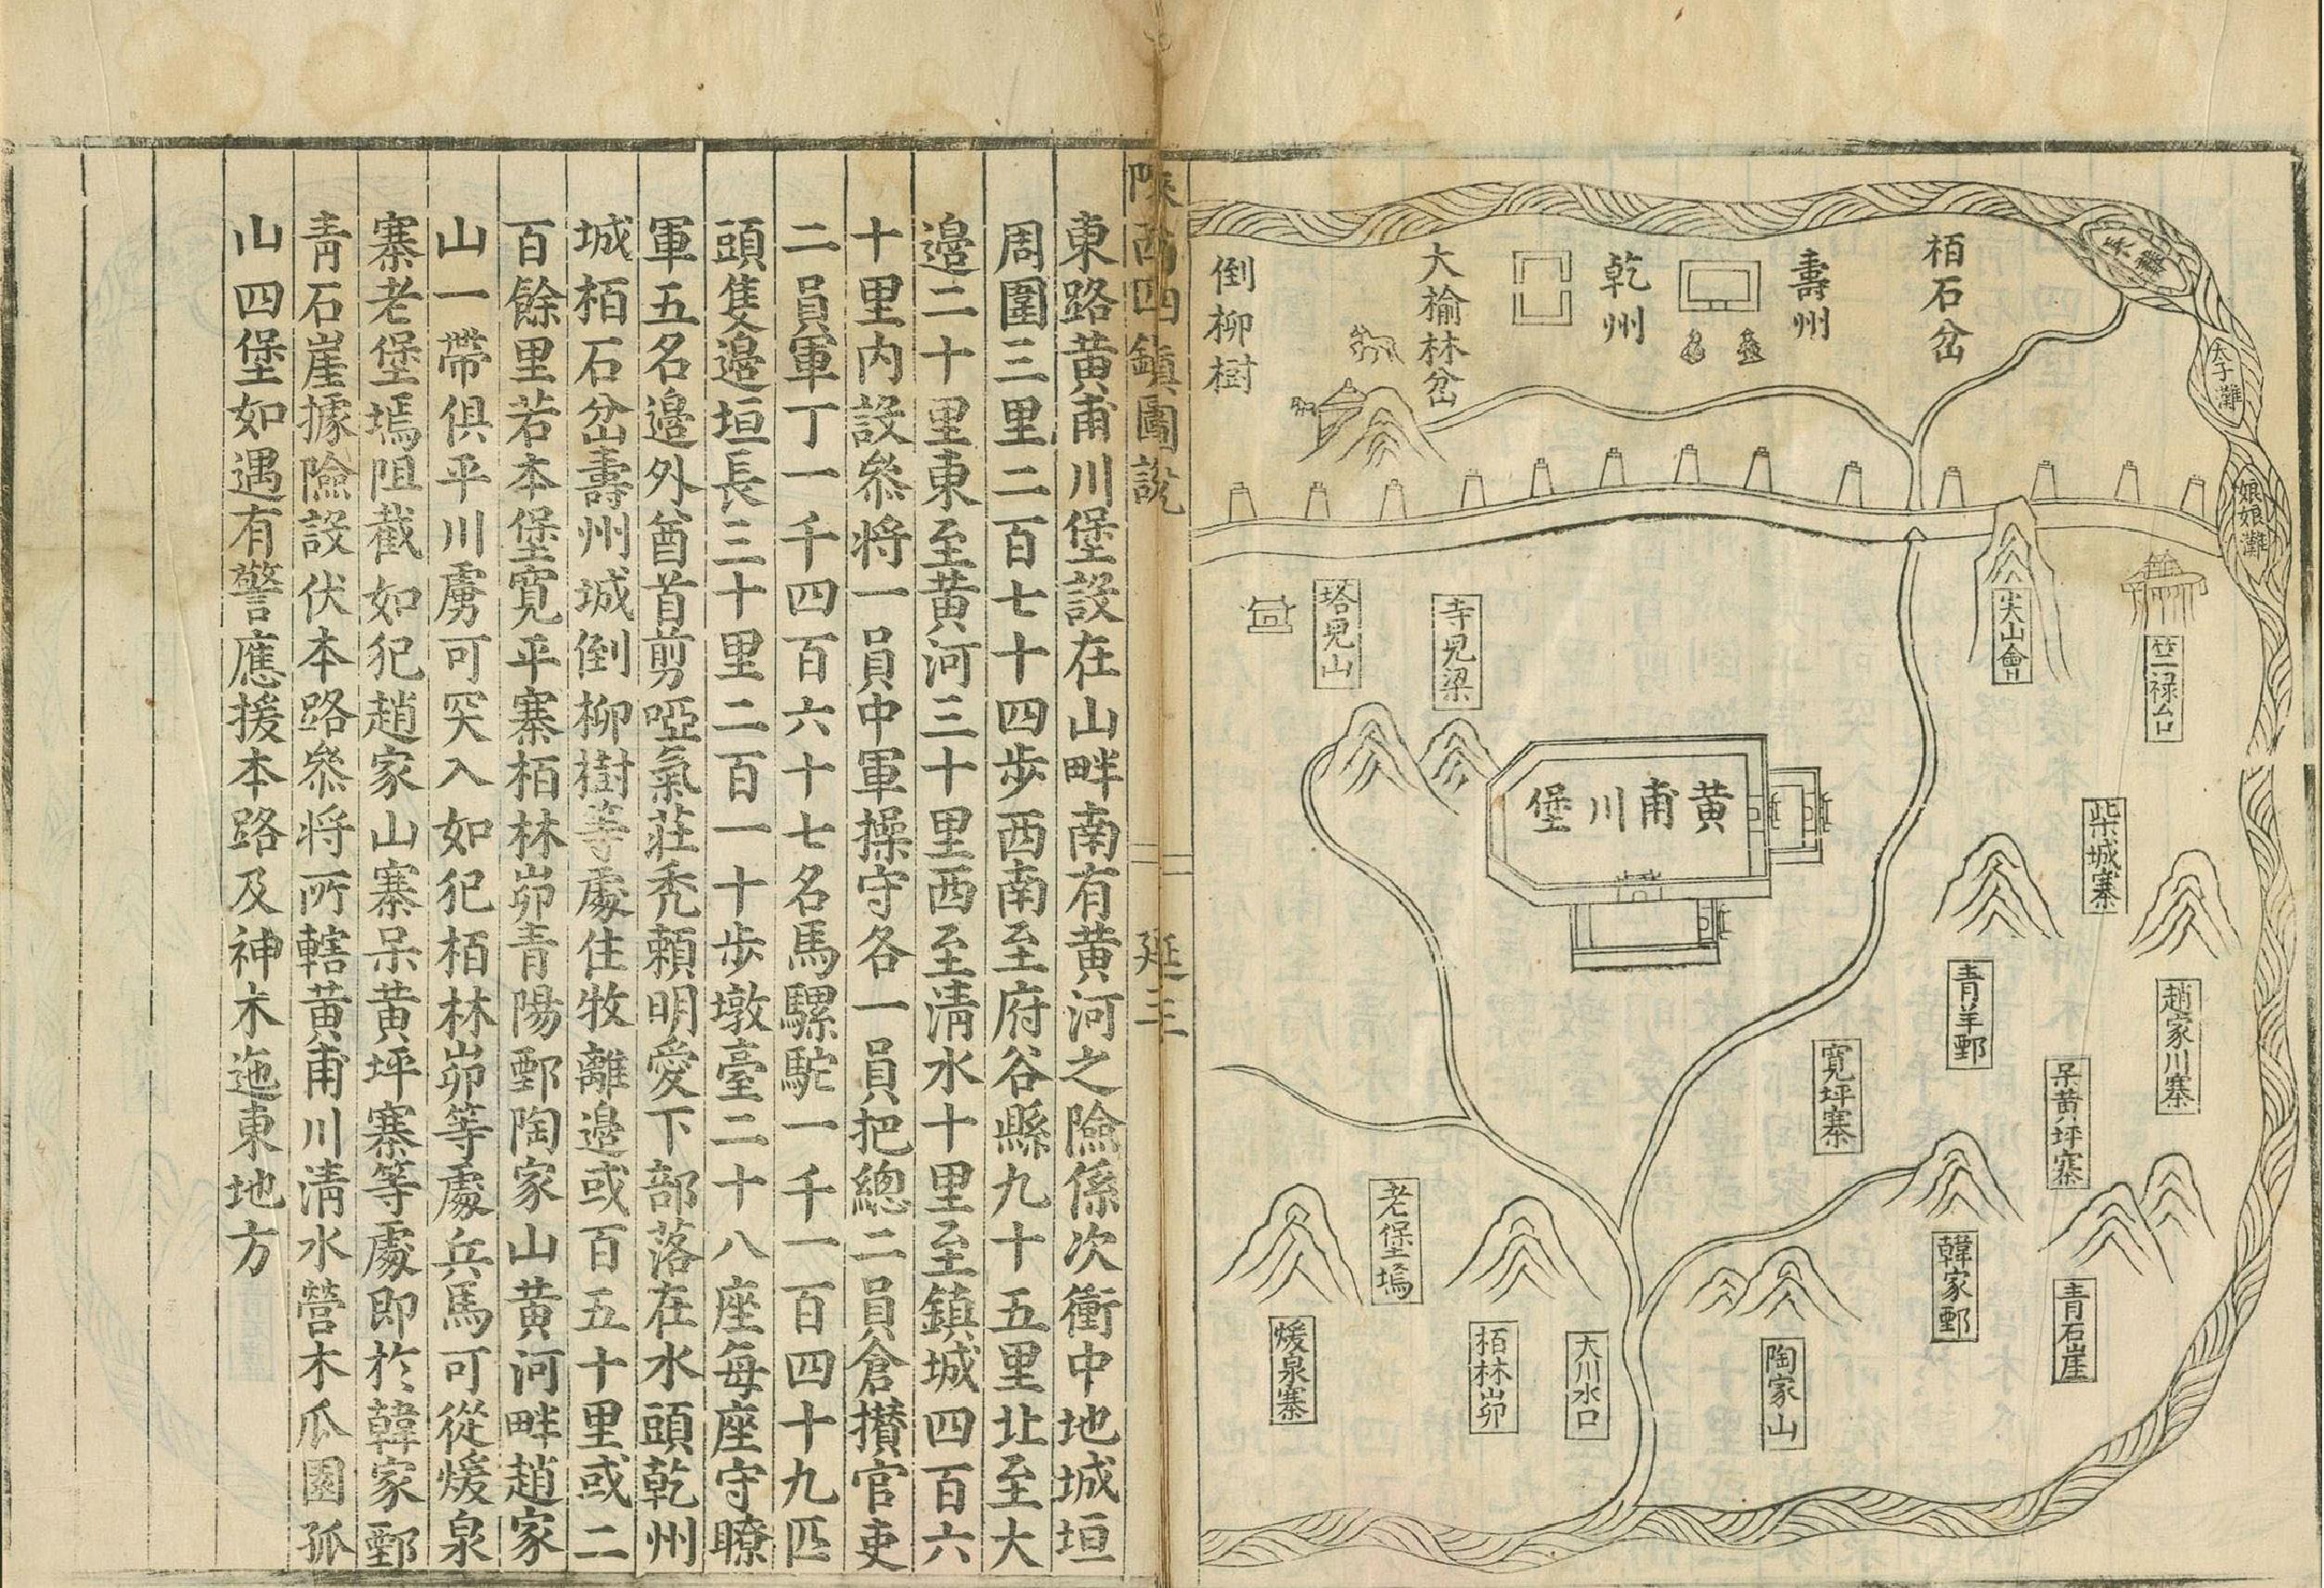 栢石岔
壽州
乾州
大榆林岔
倒柳樹
太子灘
娘娘灘
尖山會
竺祿台
寺児梁
塔児山
黃甫川堡
柴城寨
趙家川寨
青羊鄄
呆黃坪寨
寬坪寨
韓家鄄
青石崖
陶家山
大川水口
栢林峁
老堡塢
煖泉寨
陝西四鎮圖說
延三
東路黃甫川堡設在山畔南有黃河之險係次衝中地城垣
周圍三里二百七十四步西南至府谷縣九十五里北至大
邊二十里東至黃河三十里西至清水十里至鎮城四百六
十里內設叅將一員中軍操守各一員把總二員倉攢官吏
二員軍丁一千四百六十七名馬騾駝一千一百四十九匹
頭隻邊垣長三十里二百一十步墩臺二十八座每座守瞭
軍五名邊外酋首剪啞氣莊禿賴明愛下部落在水頭乾州
城栢石岔壽州城倒柳樹等處住牧離邊或百五十里或二
百餘里若本堡寬平寨栢林峁青陽鄄陶家山黃河畔趙家
山一帶俱平川虜可突入如犯栢林峁等處兵馬可從煖泉
寨老堡塢阻截如犯趙家山寨呆黃坪寨等處即於韓家鄄
青石崖據險設伏本路叅將所轄黃甫川清水營木瓜園孤
山四堡如遇有警應援本路及神木迤東地方